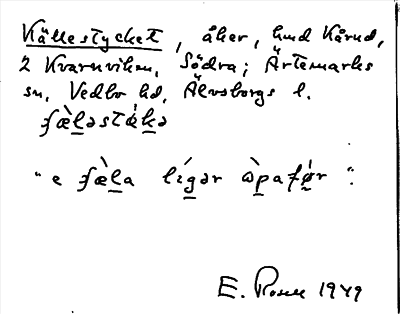 Källestycket, åker, hmd Kårud,
2 Kvarnviken, Södra; Ärtemarks
sn, Vedbo hd, Älvsborgs l.
fæ̀ləstẏ́kə
"e fæ̀la lígər òpafǿr".
E. Rosell 1949